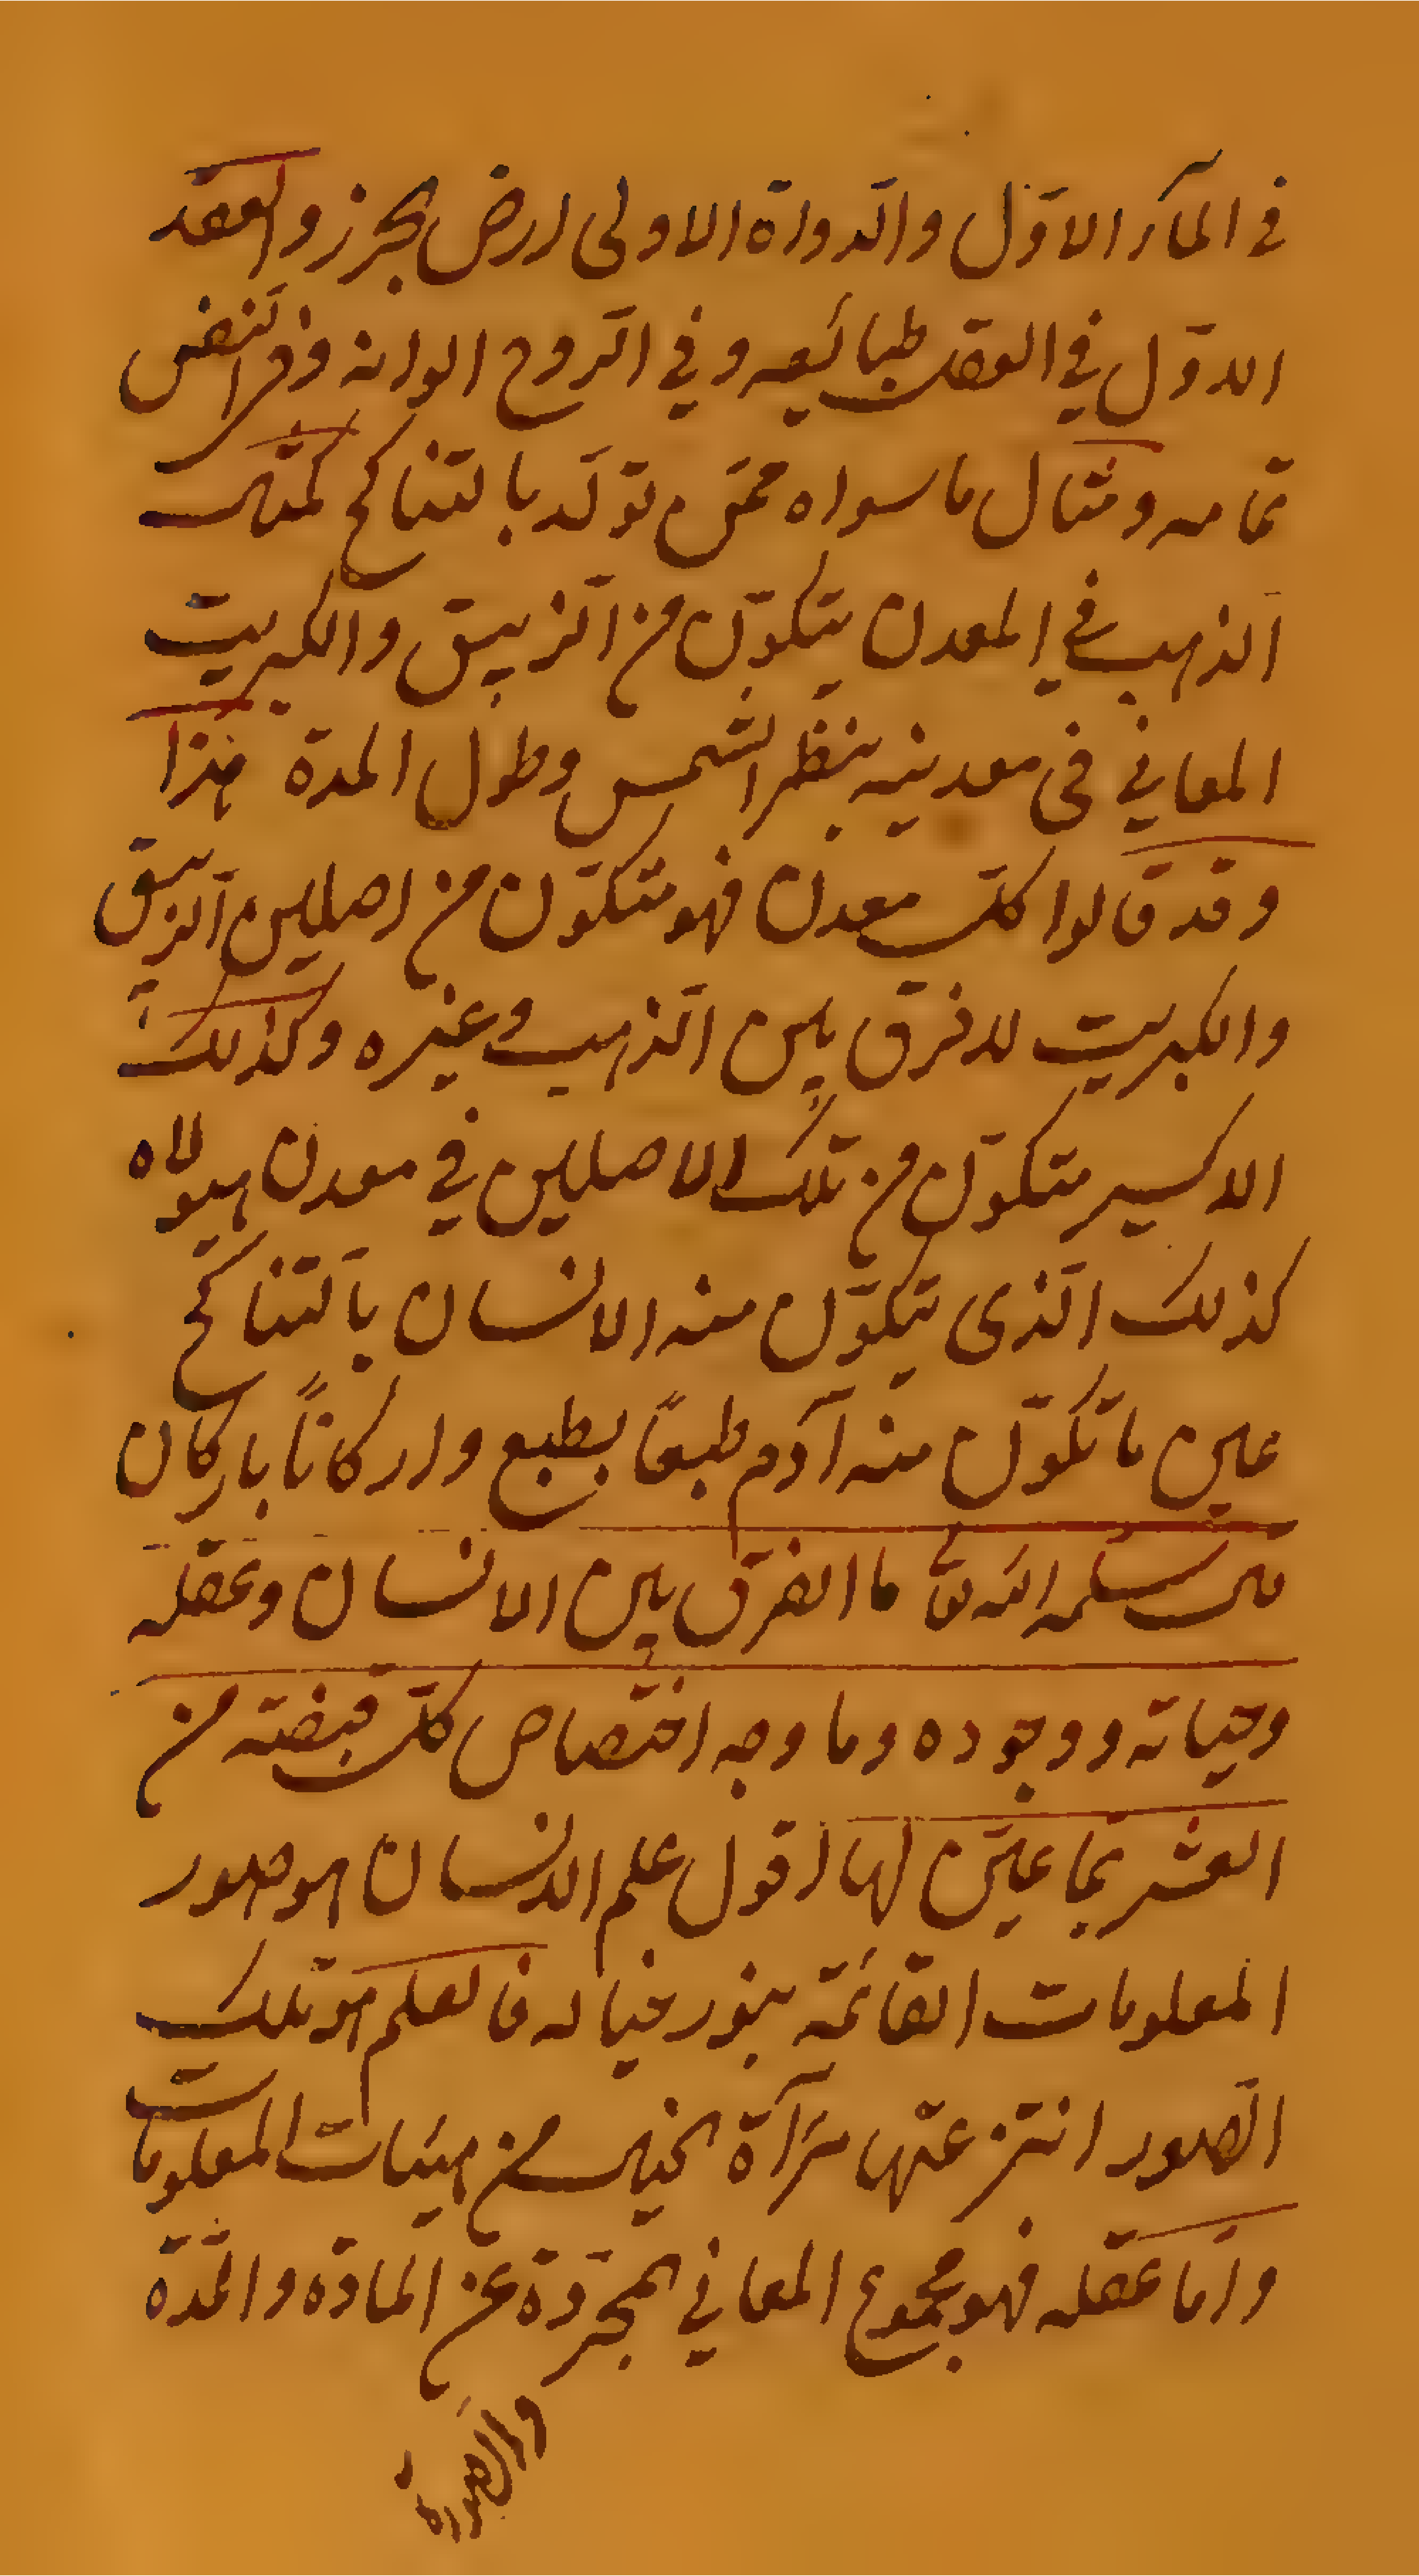 في المآء الاوّل والدواة الاولى ارض الجرز والعقد
الاوّل في العقد طبائعه وفي الرّوح الوانه وفي النفس
تمامه ومثال ما سواه ممّن تولّد بالتناكح كمثل
الذهب في المعدن يتكوّن من الزيبق والكبريت
المعاني في معدنيه بنظر الشمس وطول المدة هذا
وقد قالوا كلّ معدن فهو متكوّن من اصلين الزيبق
والكبريت لا فرق بين الذهب وغيره وكذلك
الاكسير متكوّن من تلك الاصلين في معدن هيولاه
كذلك الّذى يتكوّن منه الانسان بالتناكح
عين ما تكوّن منه آدم طبعاً بطبع واركاناً باركان
قال سلمه الله تع ما الفرق بين الانسان وعقله
وحياته ووجوده وما وجه اختصاص كلّ قبضة من
العشر بما عيّن لها اقول علم الانسان هو صور
المعلومات القائمة بنور خياله فالعلم هو تلك
الصّور انتزعتها مرآة الخيال من هيئات المعلومات
وامّا عقله فهو مجموع المعاني المجرّدة عن المادة والمدّة
والصورة